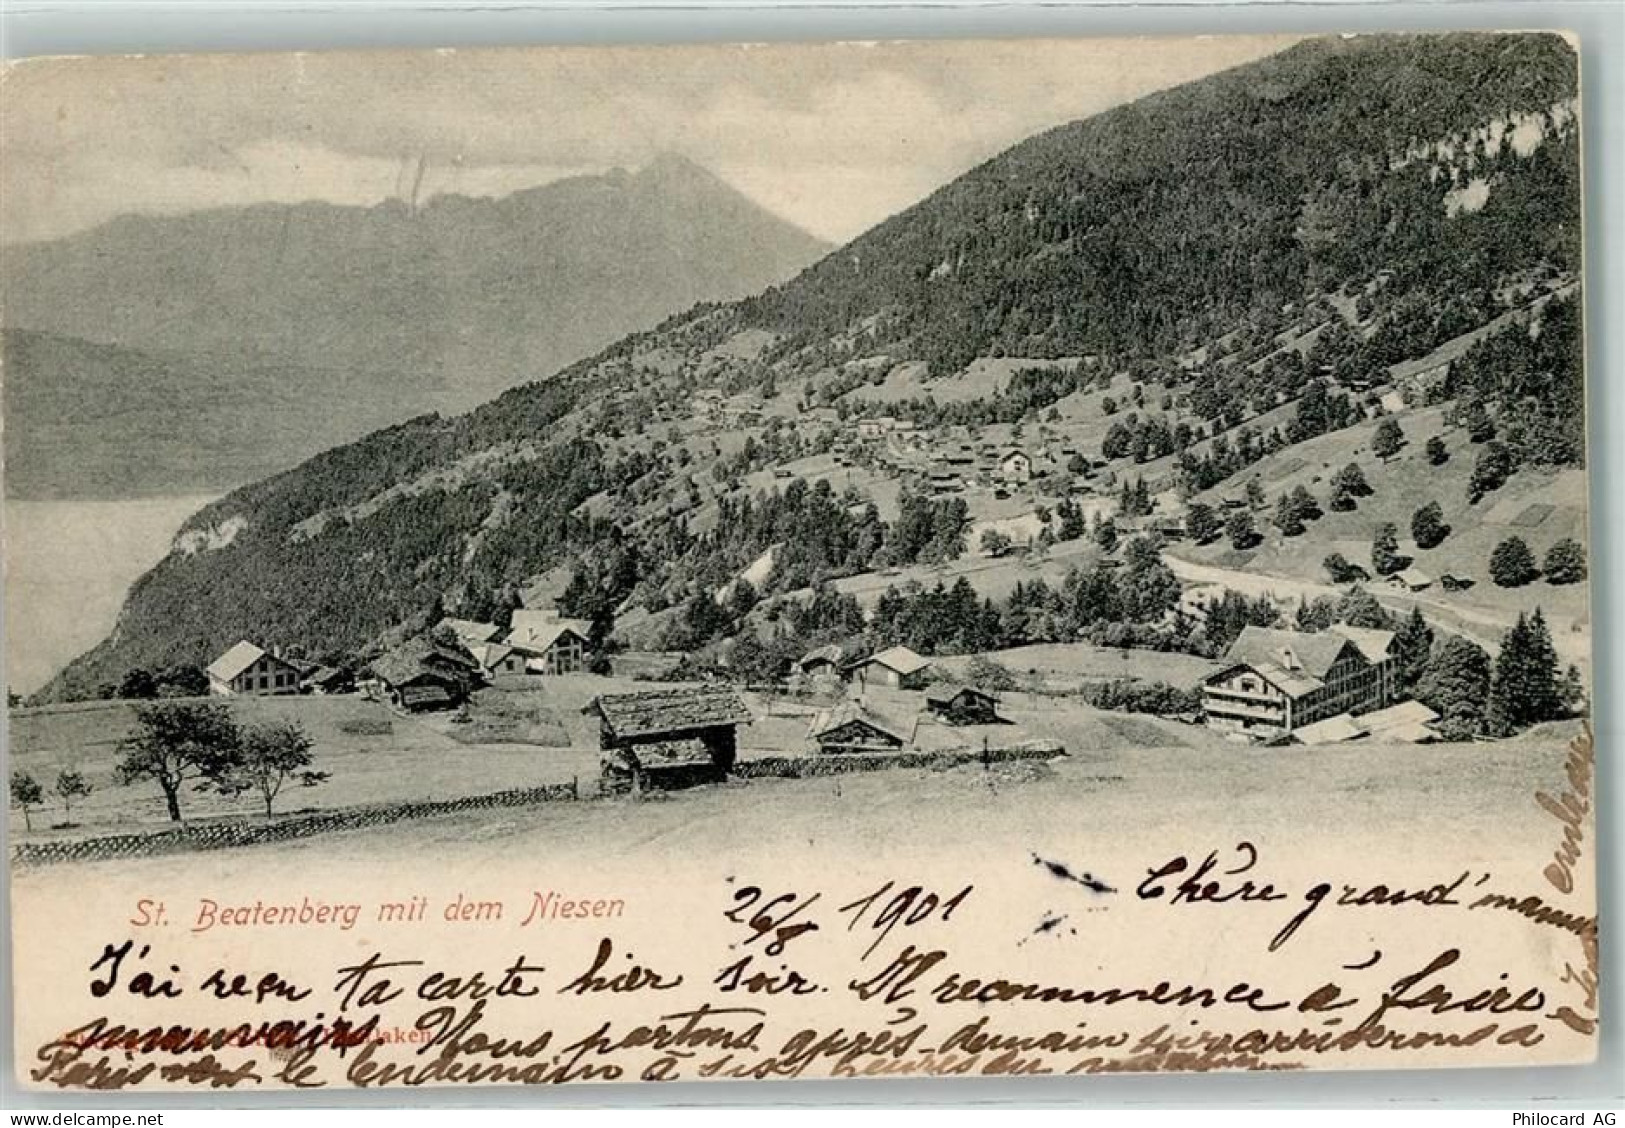 St. Beatenberg mit dem Niesen
26/8 1901
Chère grand'maman
J'ai reçu ta carte hier soir. Il recommence à faire
mauvais. Nous partons après-demain soir arriverons à
Paris vers le lendemain à six heures du
Philocard AG